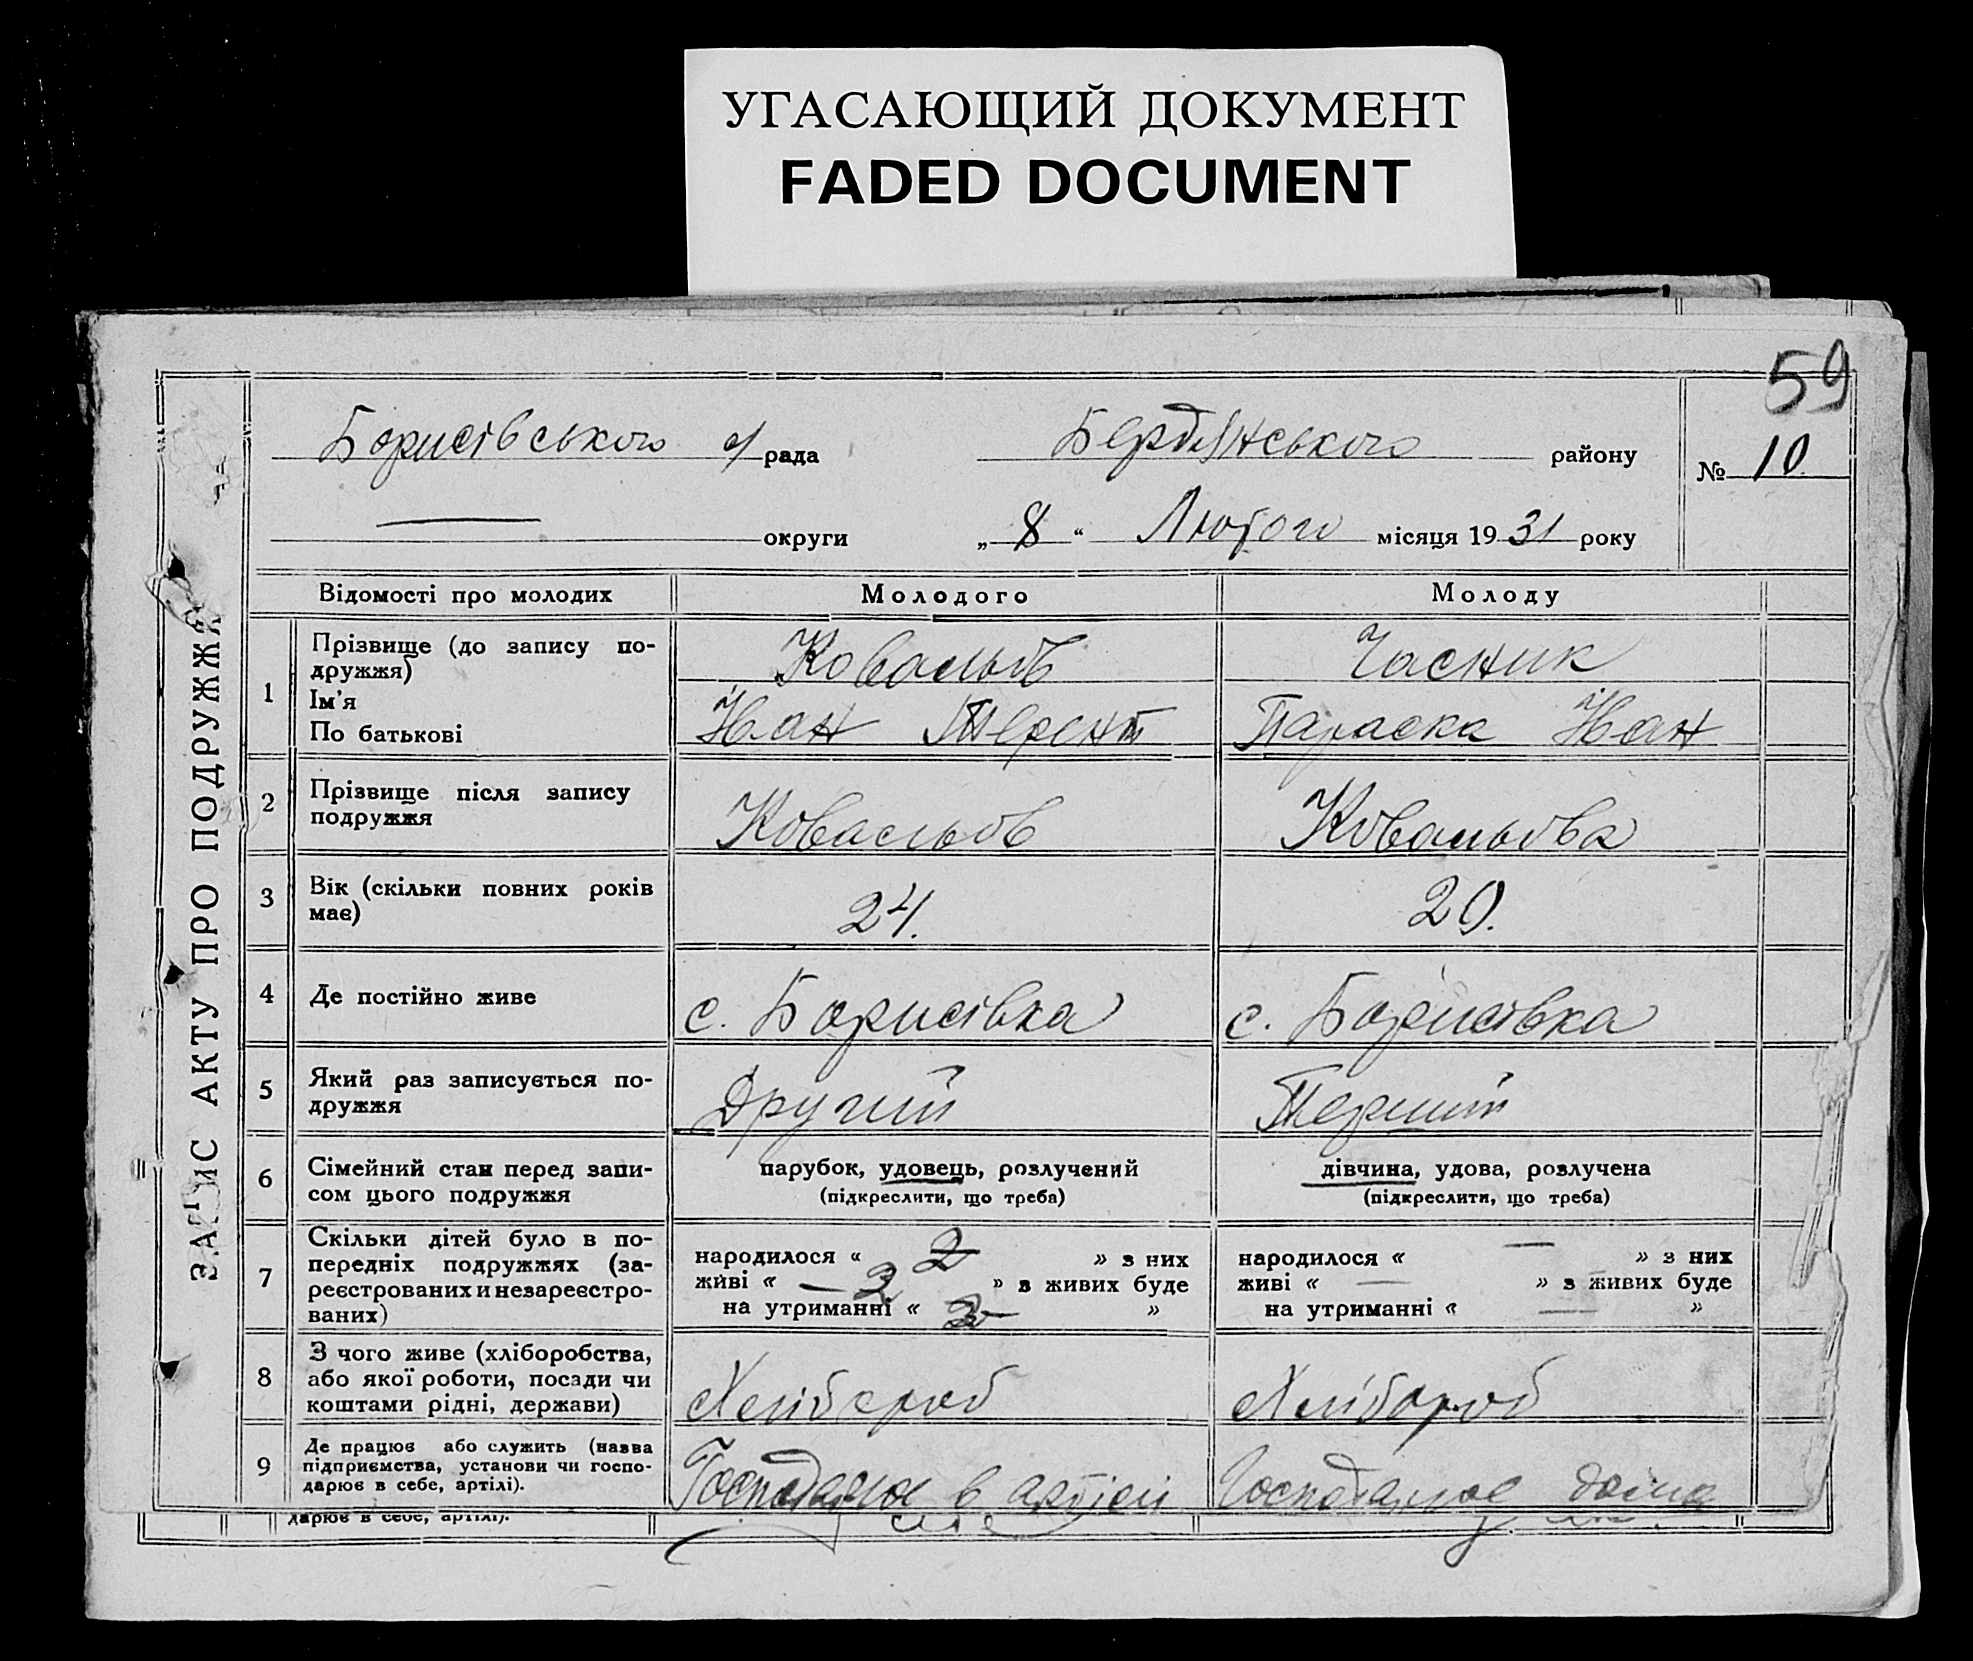 УГАСАЮЩИЙ ДОКУМЕНТ
FADED DOCUMENT
59
ЗАПИС АКТУ ПРО ПОДРУЖЖЯ
Борисівського с/рада Бердянського району № 10
округи „ 8 “ Лютого місяця 1931 року
Відомості про молодих Молодого Молоду
1 Прізвище (до запису по-
дружжя) Ковальов Часник
Ім'я
По батькові Іван Терент Параска Іван
2 Прізвище після запису
подружжя Ковальов Ковальова
3 Вік (скільки повних років
має) 24. 20.
4 Де постійно живе с. Борисівка с. Борисівка
5 Який раз записується по-
дружжя Другий Перший
6 Сімейний стан перед запи-
сом цього подружжя парубок, удовець, розлучений дівчина, удова, розлучена
(підкреслити, що треба) (підкреслити, що треба)
7 Скільки дітей було в по-
передніх подружжях (за-
реєстрованих и незареєстро-
ваних)
народилося « 2 » з них народилося « — » з них
живі « — 2 » з живих буде живі « — » з живих буде
на утриманні « 2 » на утриманні « — »
8 З чого живе (хліборобства,
або якої роботи, посади чи
коштами рідні, держави) Хлібороб Хлібороб
9 Де працює або служить (назва
підприємства, установи чи госпо-
дарює в себе, артілі). Господарює в артілі Господарює дома
дарює в себе, артілі).